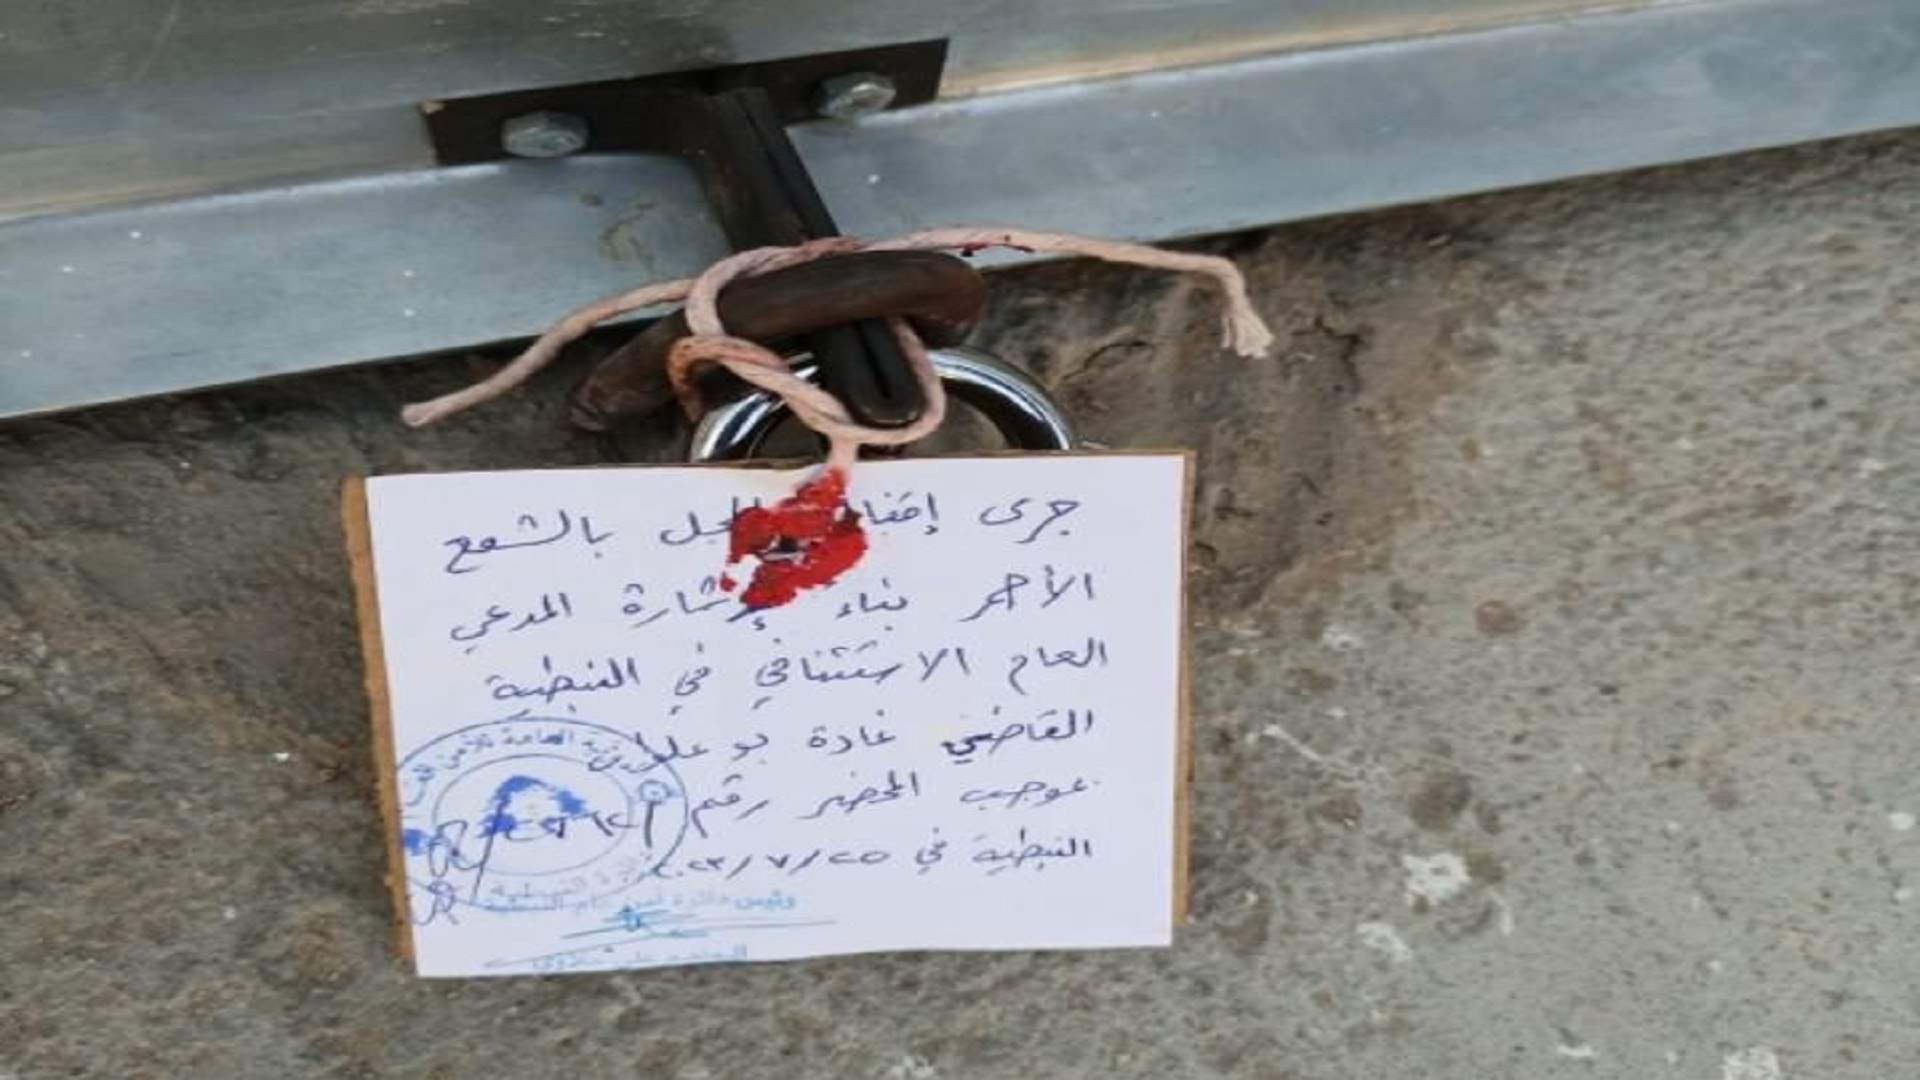 جرى إقفال المحل بالشمع
الأحمر بناء لإشارة المدعي
العام الاستئنافي في النبطية
القاضي غادة بو علوان
بموجب المحضر رقم
النبطية في ٢٠٢٣/٧/٢٥
العامة للأمن
النبطية
رئيس دائرة أمن عام النبطية